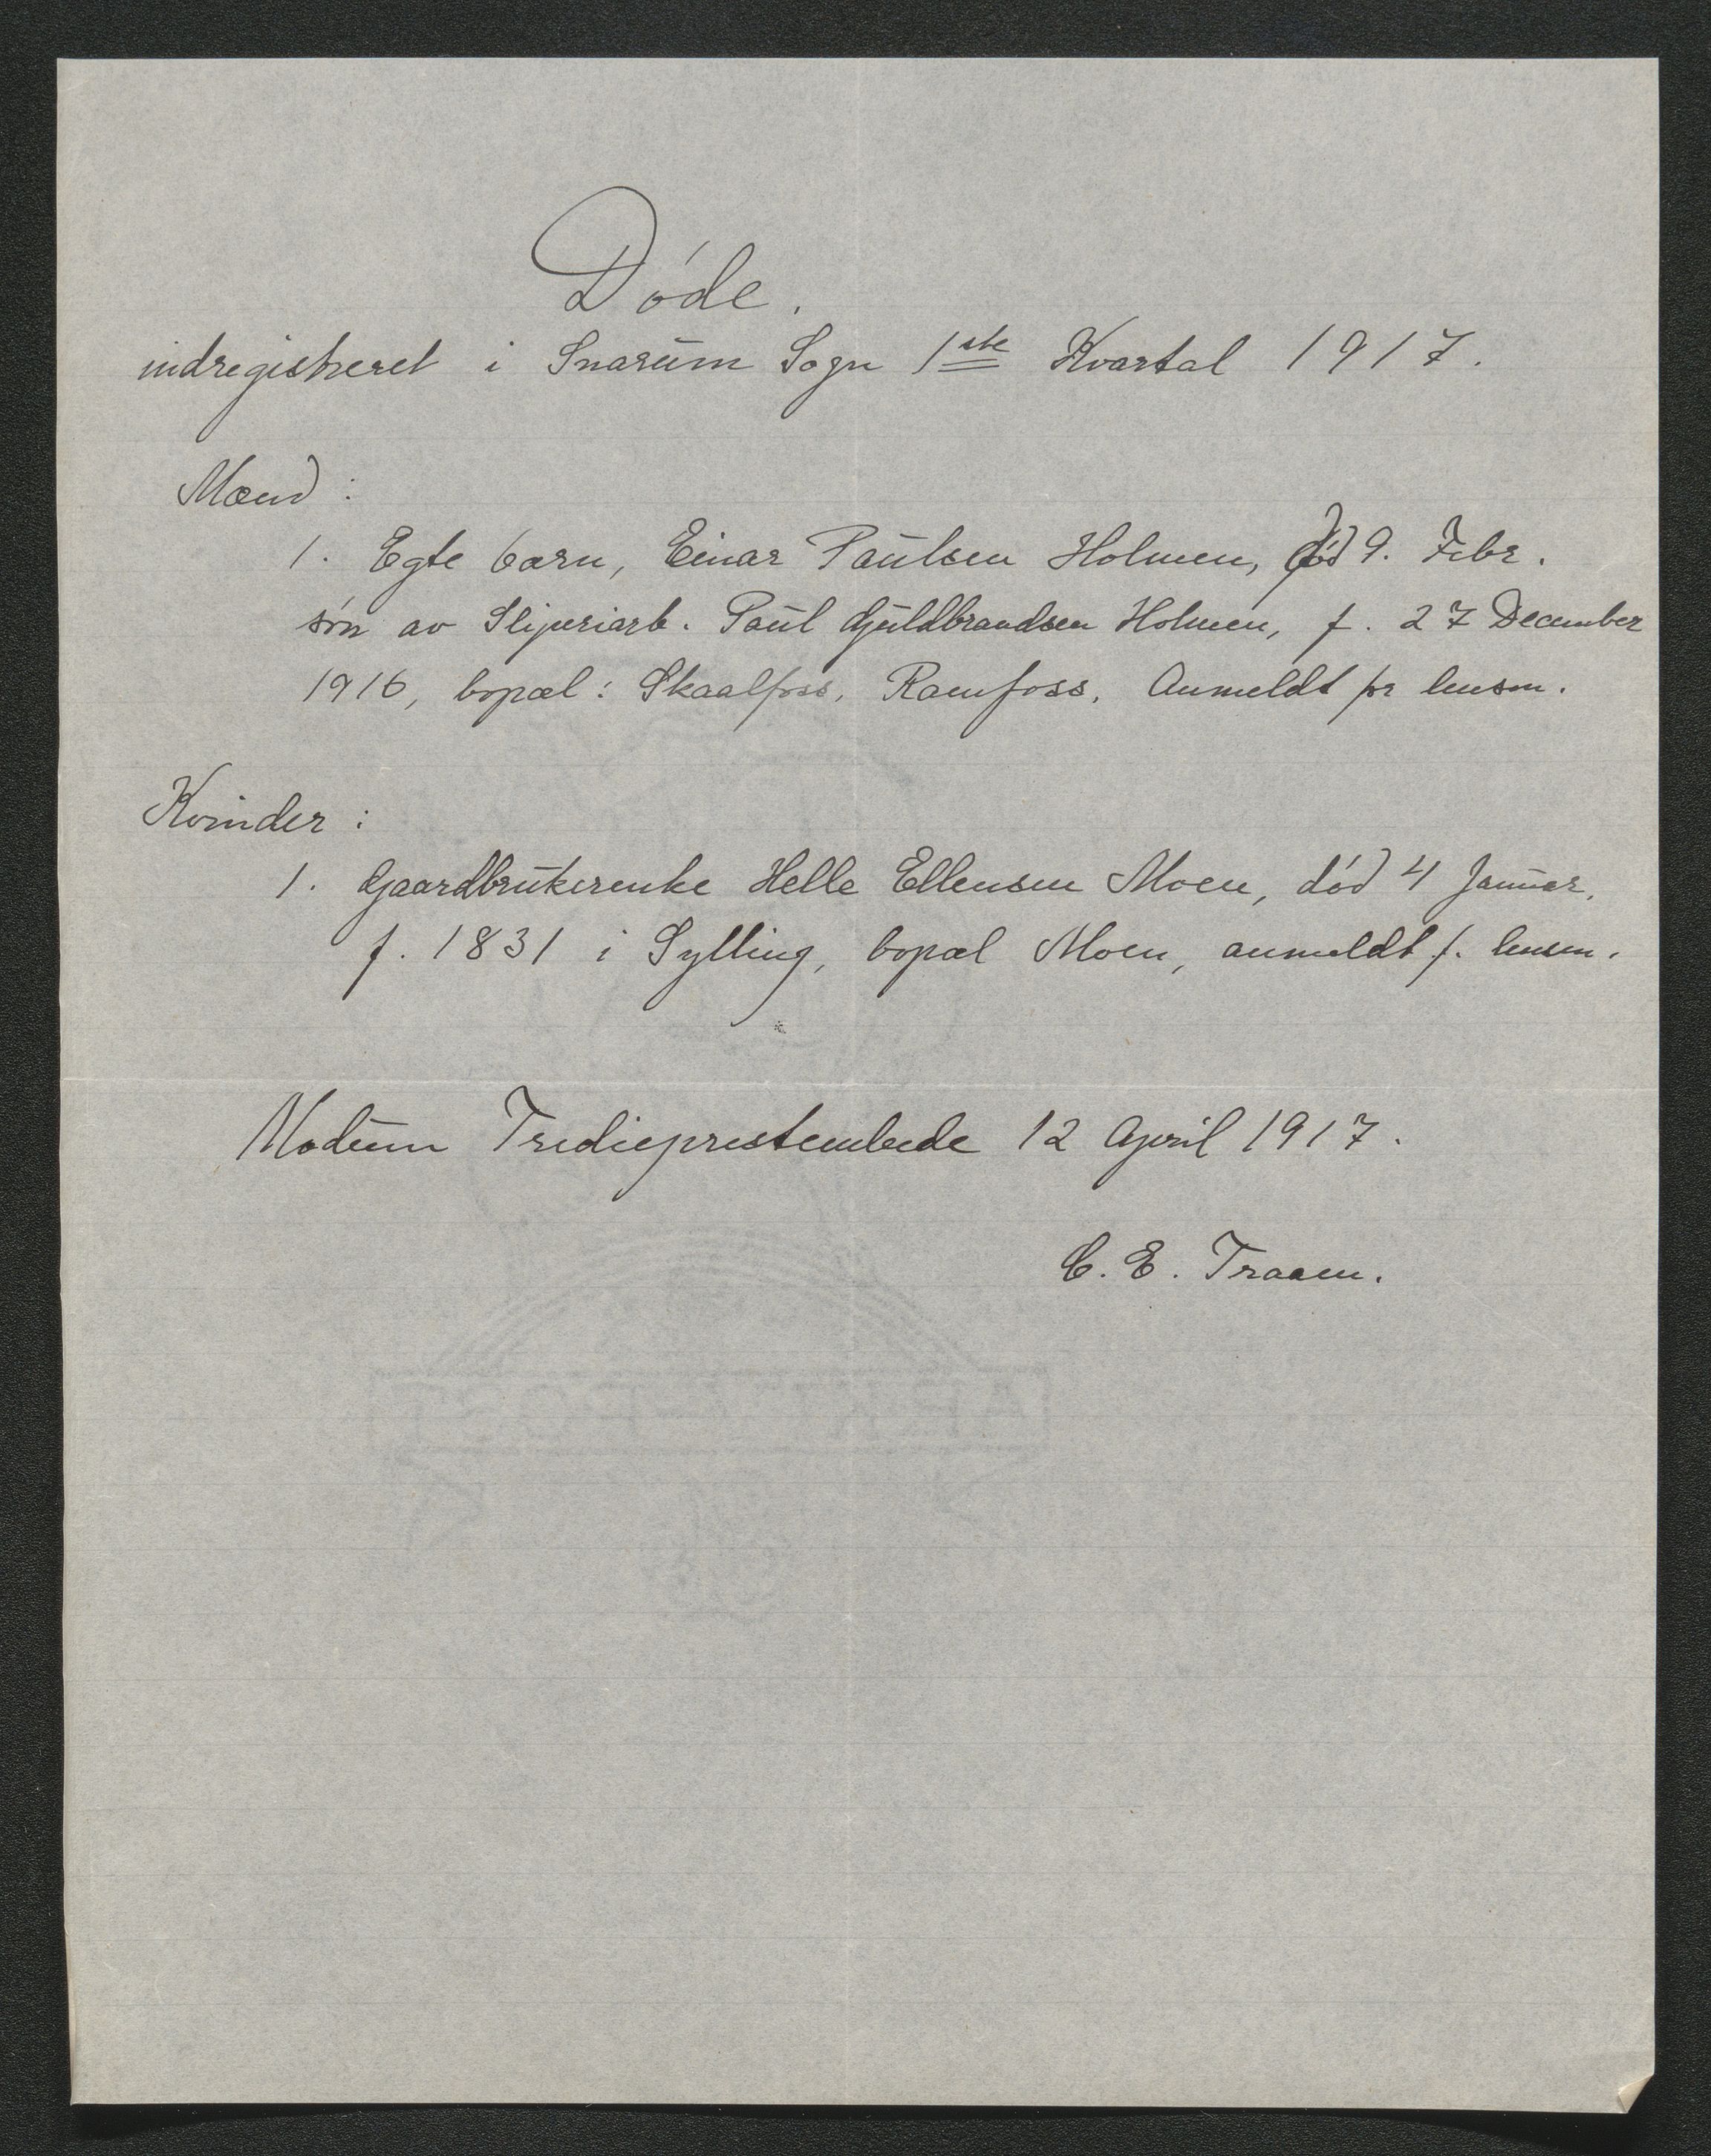 Døde.
indregistreret i Snarum Sogn 1ste Kvartal 1917.
Mænd:
1. Egte barn, Einar Paulsen Holmen, død 9. Febr.
søn av Sliperiarb. Paul Guldbrandsen Holmen, f. 27 December
1916, bopæl: Skaalfoss, Ramfoss. Anmeldt pr lensm.
Kvinder:
1. Gaardbrukerenke Helle Ellensen Moen, død 4 Januar.
f. 1831 i Sylling, bopæl Moen, anmeldt f. lensm.
Modum Tredieprestembede 12 April 1917.
C. E. Traaen.